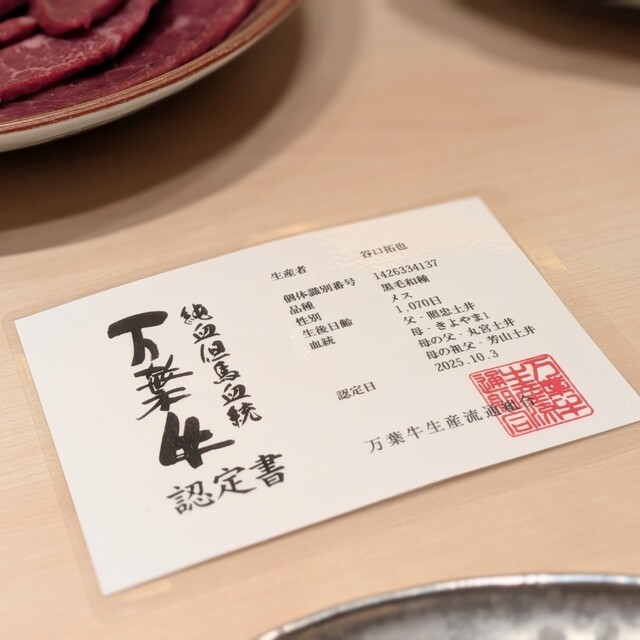 純血但馬血統
万葉牛
認定書
生産者 谷口拓也
個体識別番号 1426334137
品種 黒毛和種
性別 メス
生後日齢 1,070日
血統 父‐照忠土井
母‐きよやま1
母の父‐丸宮土井
母の祖父‐芳山土井
認定日 2025.10.3
万葉牛生産流通組合